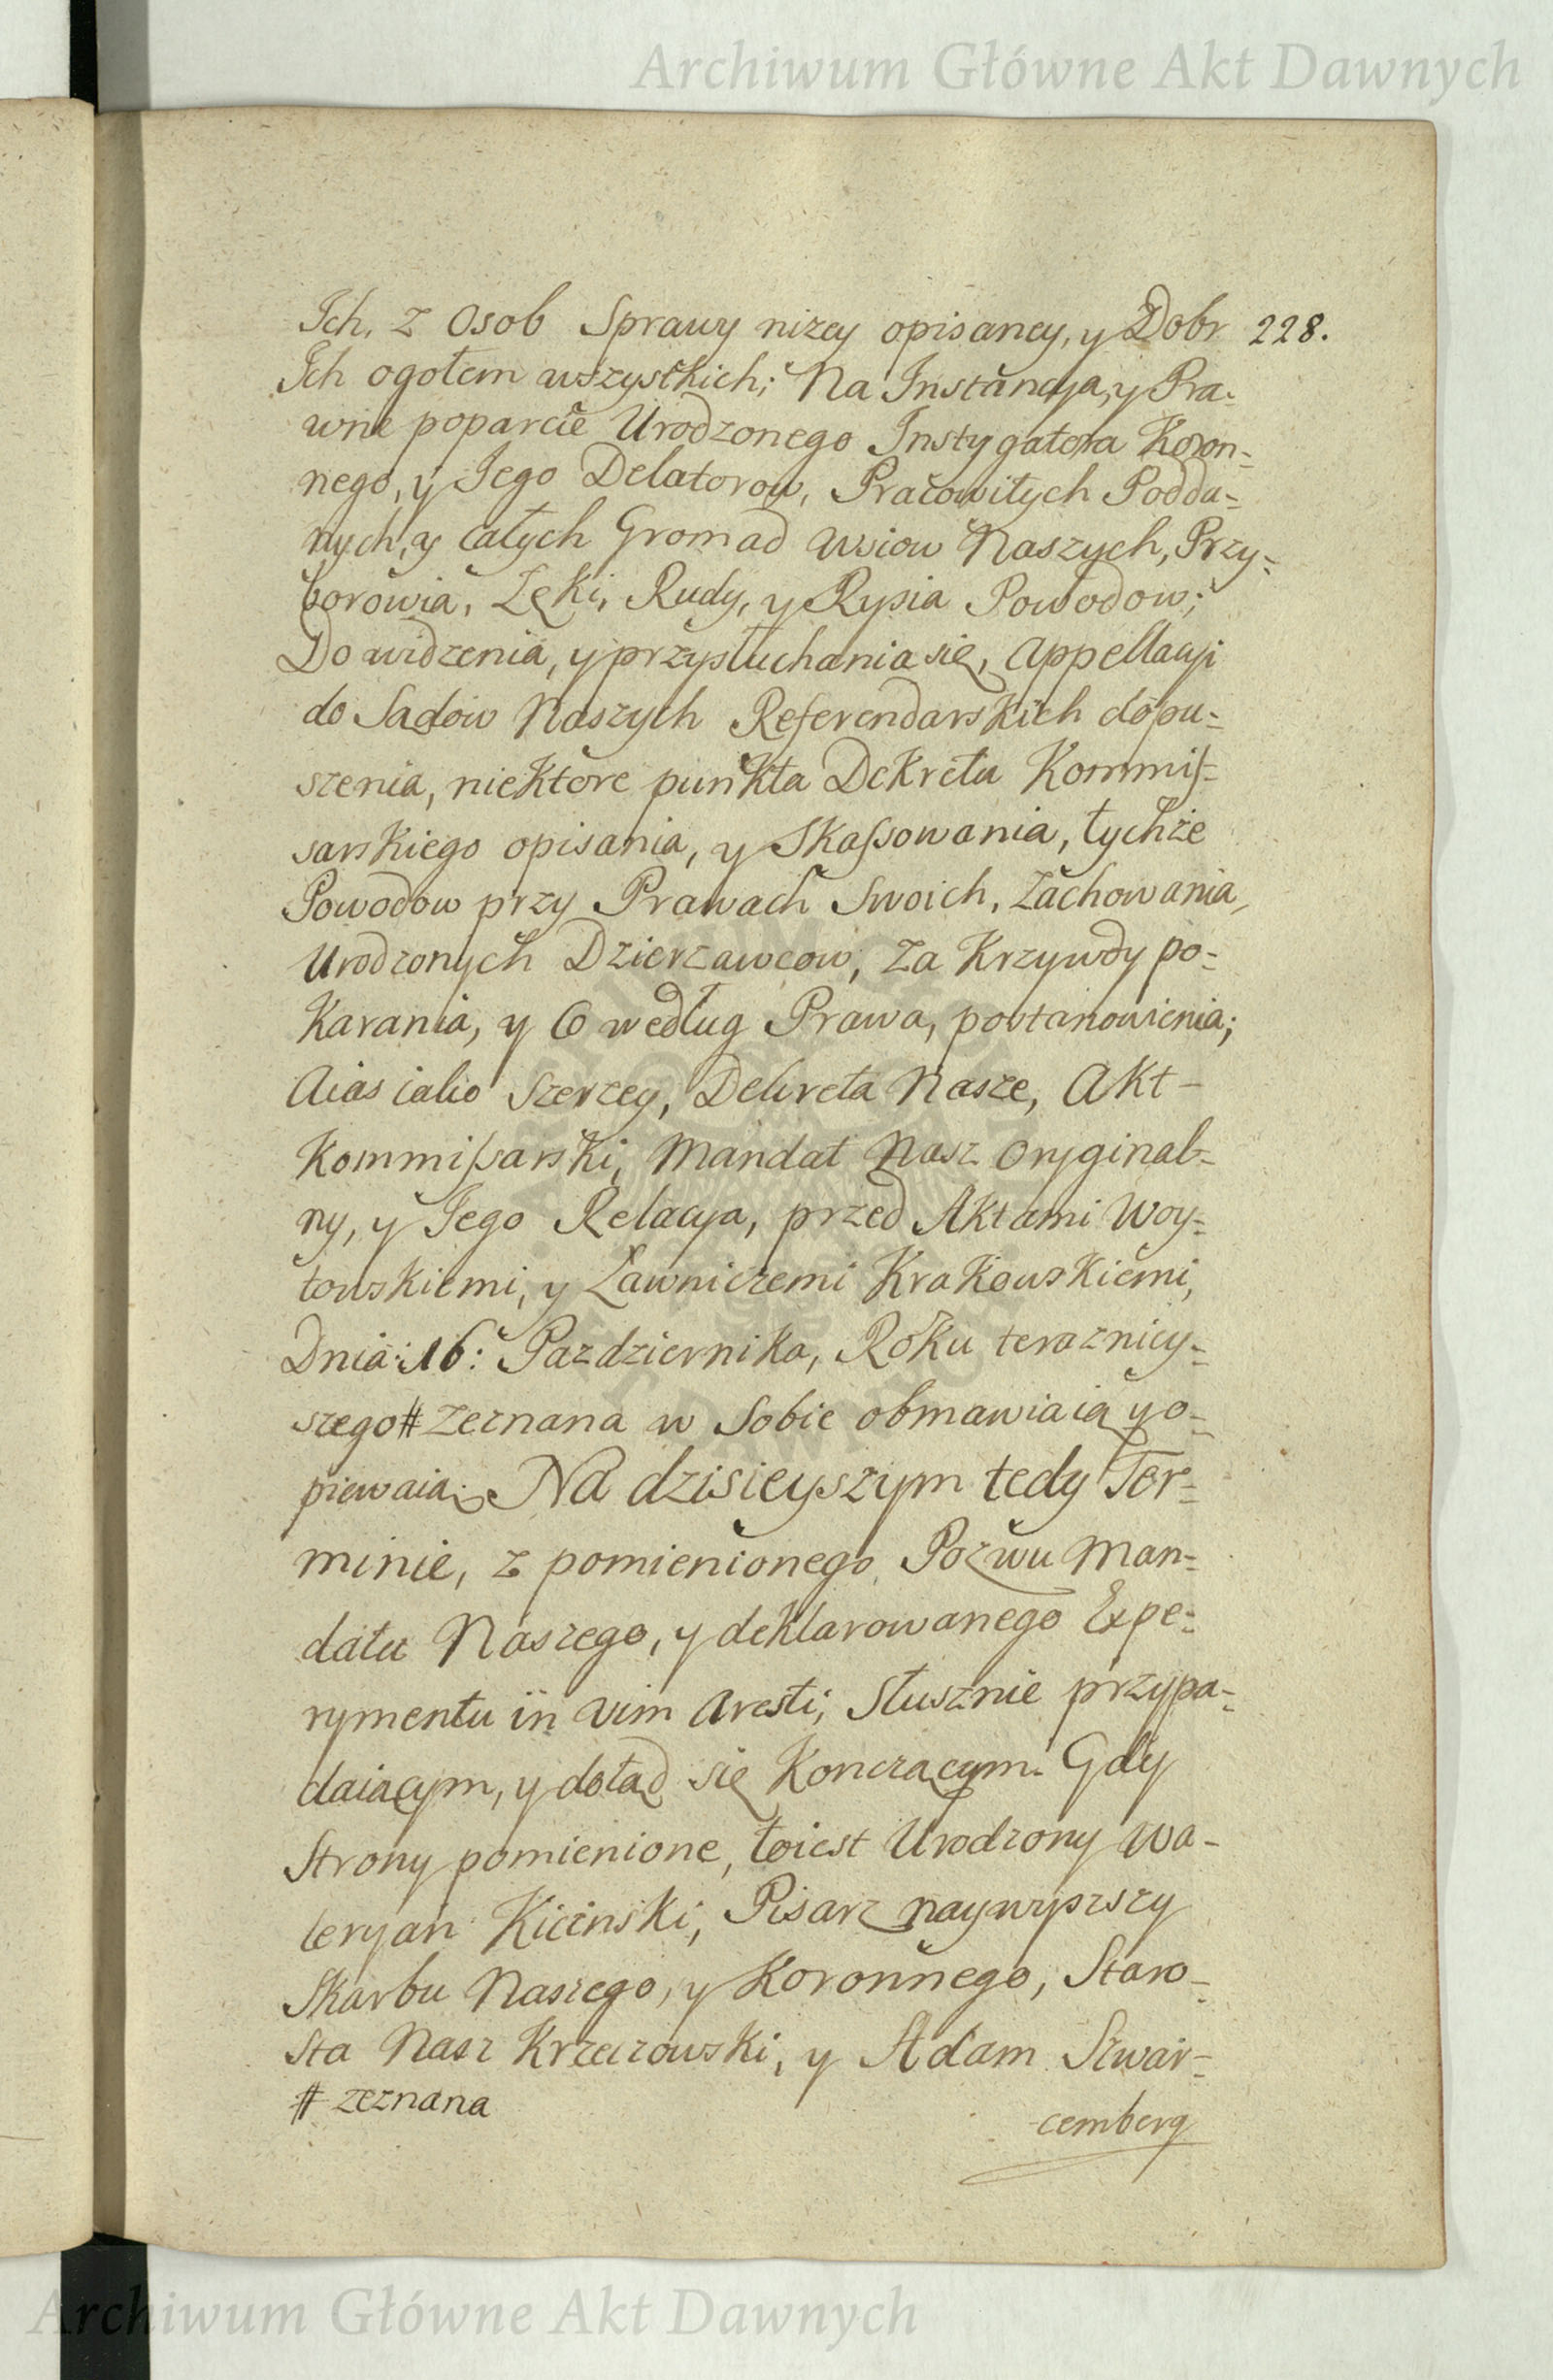 Archiwum Główne Akt Dawnych
Ich, z Osob Sprawy nizey opisaney, y Dobr 228.
Ich ogołem wszystkich; Na Instancyą, y Pra-
wne poparcie Urodzonego Instygatora Koron-
nego, y Jego Delatorow, Pracowitych Podda-
nych, y całych Gromad wsiow Naszych, Przy-
borowia, Łęki, Rudy, y Rypia Powodow;
Do widzenia, y przysłuchania się, Appellacyi
do Sądow Naszych Referendarskich dopu-
szenia, niektore punkta Dekretu Kommis-
sarskiego opisania, y Skassowania, tychże
Powodow przy Prawach Swoich, Zachowania,
Urodzonych Dzierzawcow, Za Krzywdy po-
Karania, y Co według Prawa, postanowienia;
Aias iako Szerzey, Dekreta Nasze, Akt-
Kommissarski, Mandat Nasz Oryginal-
ny, y Jego Relacya, przed Aktami Woy-
towskiemi, y Ławniczemi Krakowskiemi,
Dnia: 16: Pazdziernika, Roku terazniey-
szego # Zeznana w Sobie obmawiaią y o-
piewaią. Na dzisieyszym tedy Ter-
minie, z pomienionego Pozwu Man-
datu Naszego, y deklarowanego Expe-
rymentu in vim Aresti, Słusznie przypa-
daiącym, y dotąd się Konczącym. Gdy
Strony pomienione, toiest Urodzony Wa-
leryan Kicinski, Pisarz naywyszszy
Skarbu Naszego, y Koronnego, Staro-
sta Nasz Krzeczowski, y Adam Szwar-
# zeznana
cemberg
Archiwum Główne Akt Dawnych